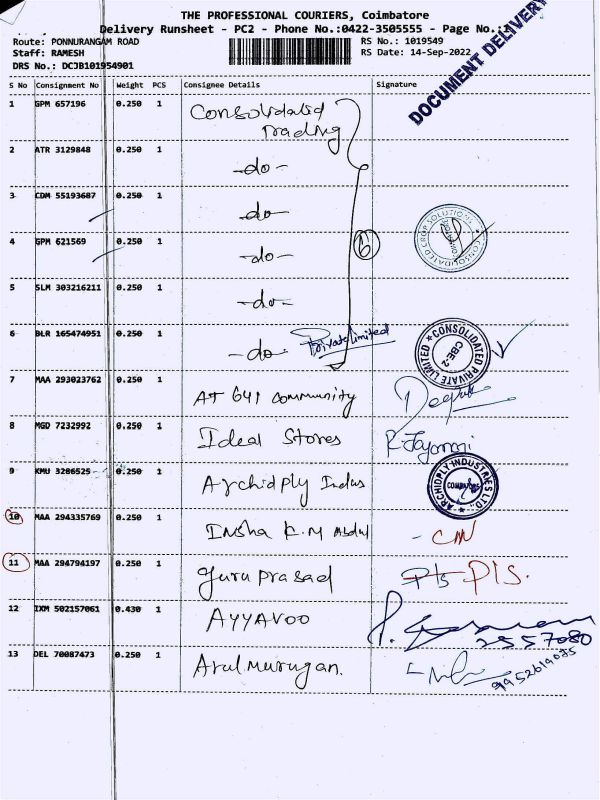 THE PROFESSIONAL COURIERS, Coimbatore
Delivery Runsheet - PC2 - Phone No.:0422-3505555 - Page No.:1
Route: PONNURANGAM ROAD RS No.: 1019549
Staff: RAMESH RS Date: 14-Sep-2022
DRS No.: DCJB101954901
DOCUMENT DELIVERY
S No Consignment No Weight PCS Consignee Details Signature
1 GPM 657196 0.250 1 Consolidated
Trading
2 ATR 3129848 0.250 1 -do-
3 CDM 55193687 0.250 1 -do-
4 GPM 621569 0.250 1 -do-
6
CONSOLIDATED CROP SOLUTIONS
5 SLM 303216211 0.250 1 -do-
6 BLR 165474951 0.250 1 -do- Private Limited
CONSOLIDATED PRIVATE LIMITED
CBE-2
7 MAA 293023762 0.250 1 AT 641 Community Deepak
8 MGD 7232992 0.250 1 Ideal Stores
9 KMU 3286525 0.250 1 Archidply Indus
ARCHIDPLY INDUSTRIES LTD.
10 MAA 294335769 0.250 1 Insha K.M Abdul - CN
11 MAA 294794197 0.250 1 Guru Prasad Pls Pls.
12 IXM 502157061 0.430 1 AYYAVOO
2557080
13 DEL 70087473 0.250 1 Arul Murugan.
9952619085